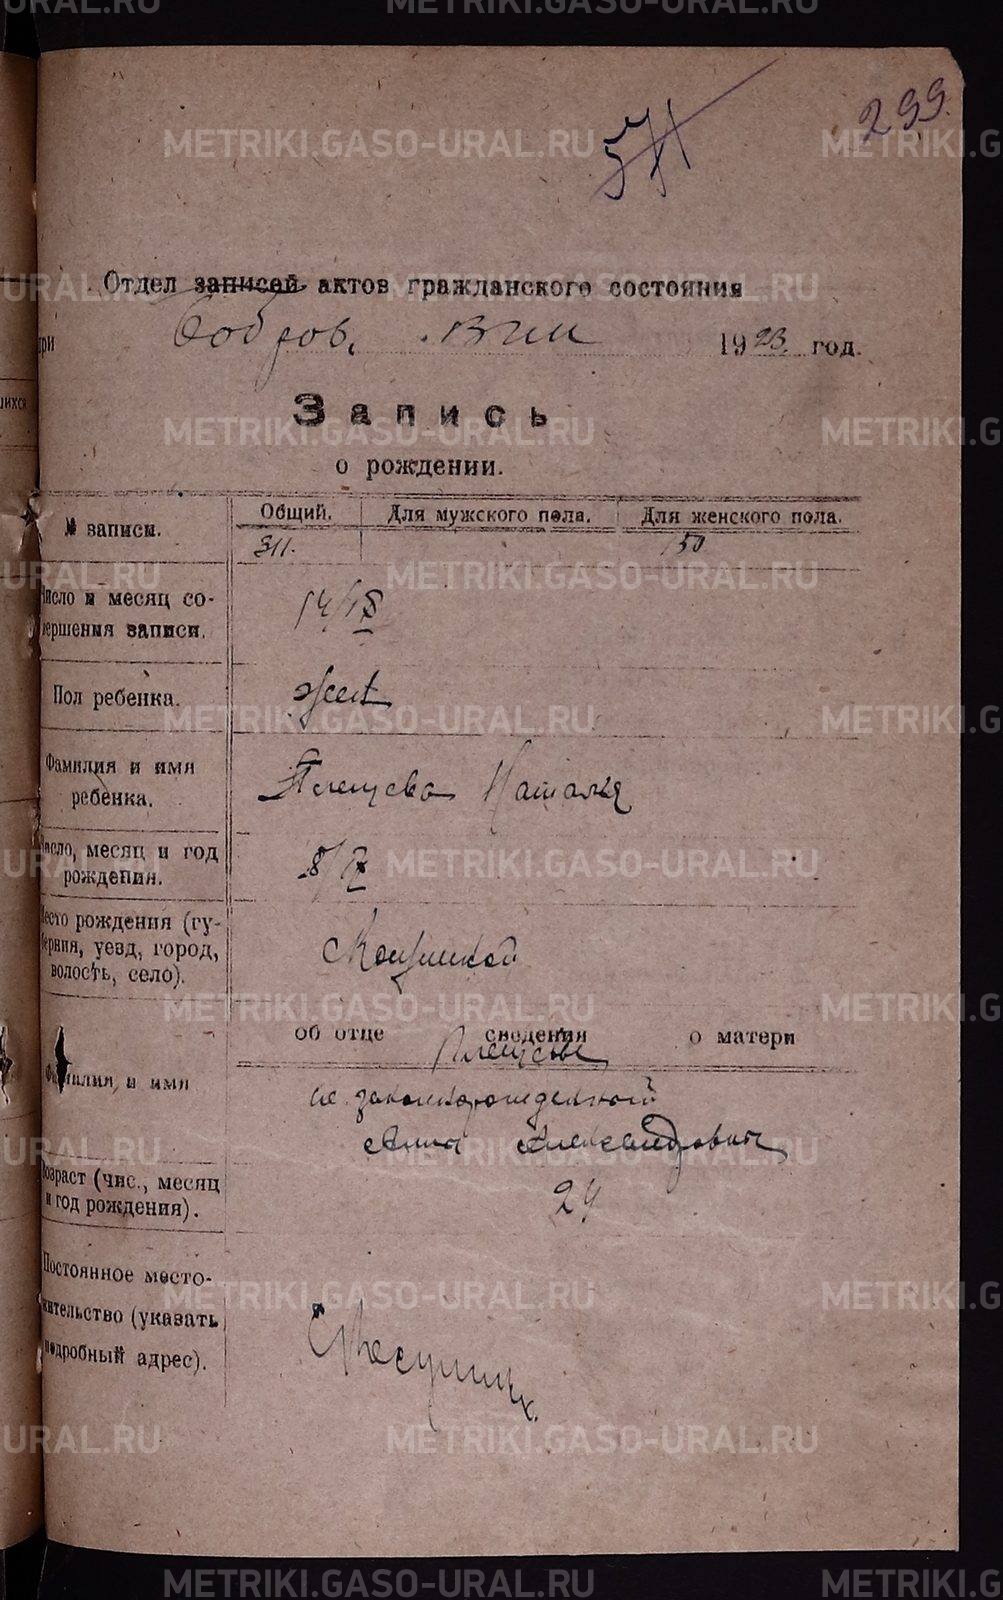 299.
571
Отдел записей актов гражданского состояния
при Бобров. ВИК 1923 год.
Запись
о рождении.
№ записи.
Общий. Для мужского пола. Для женского пола.
311. 150
Число и месяц со-
вершения записи.
14/
Пол ребенка.
жен
Фамилия и имя
ребенка.
Плещева Наталья
Число, месяц и год
рождения.
8/7
Место рождения (гу-
берния, уезд, город,
волость, село).
об отце сведения о матери
Фамилия и имя
незаконнорожденной
Анна Александровна
Возраст (чис., месяц
и год рождения).
24
Постоянное место-
жительство (указать
подробный адрес).
METRIKI.GASO-URAL.RU